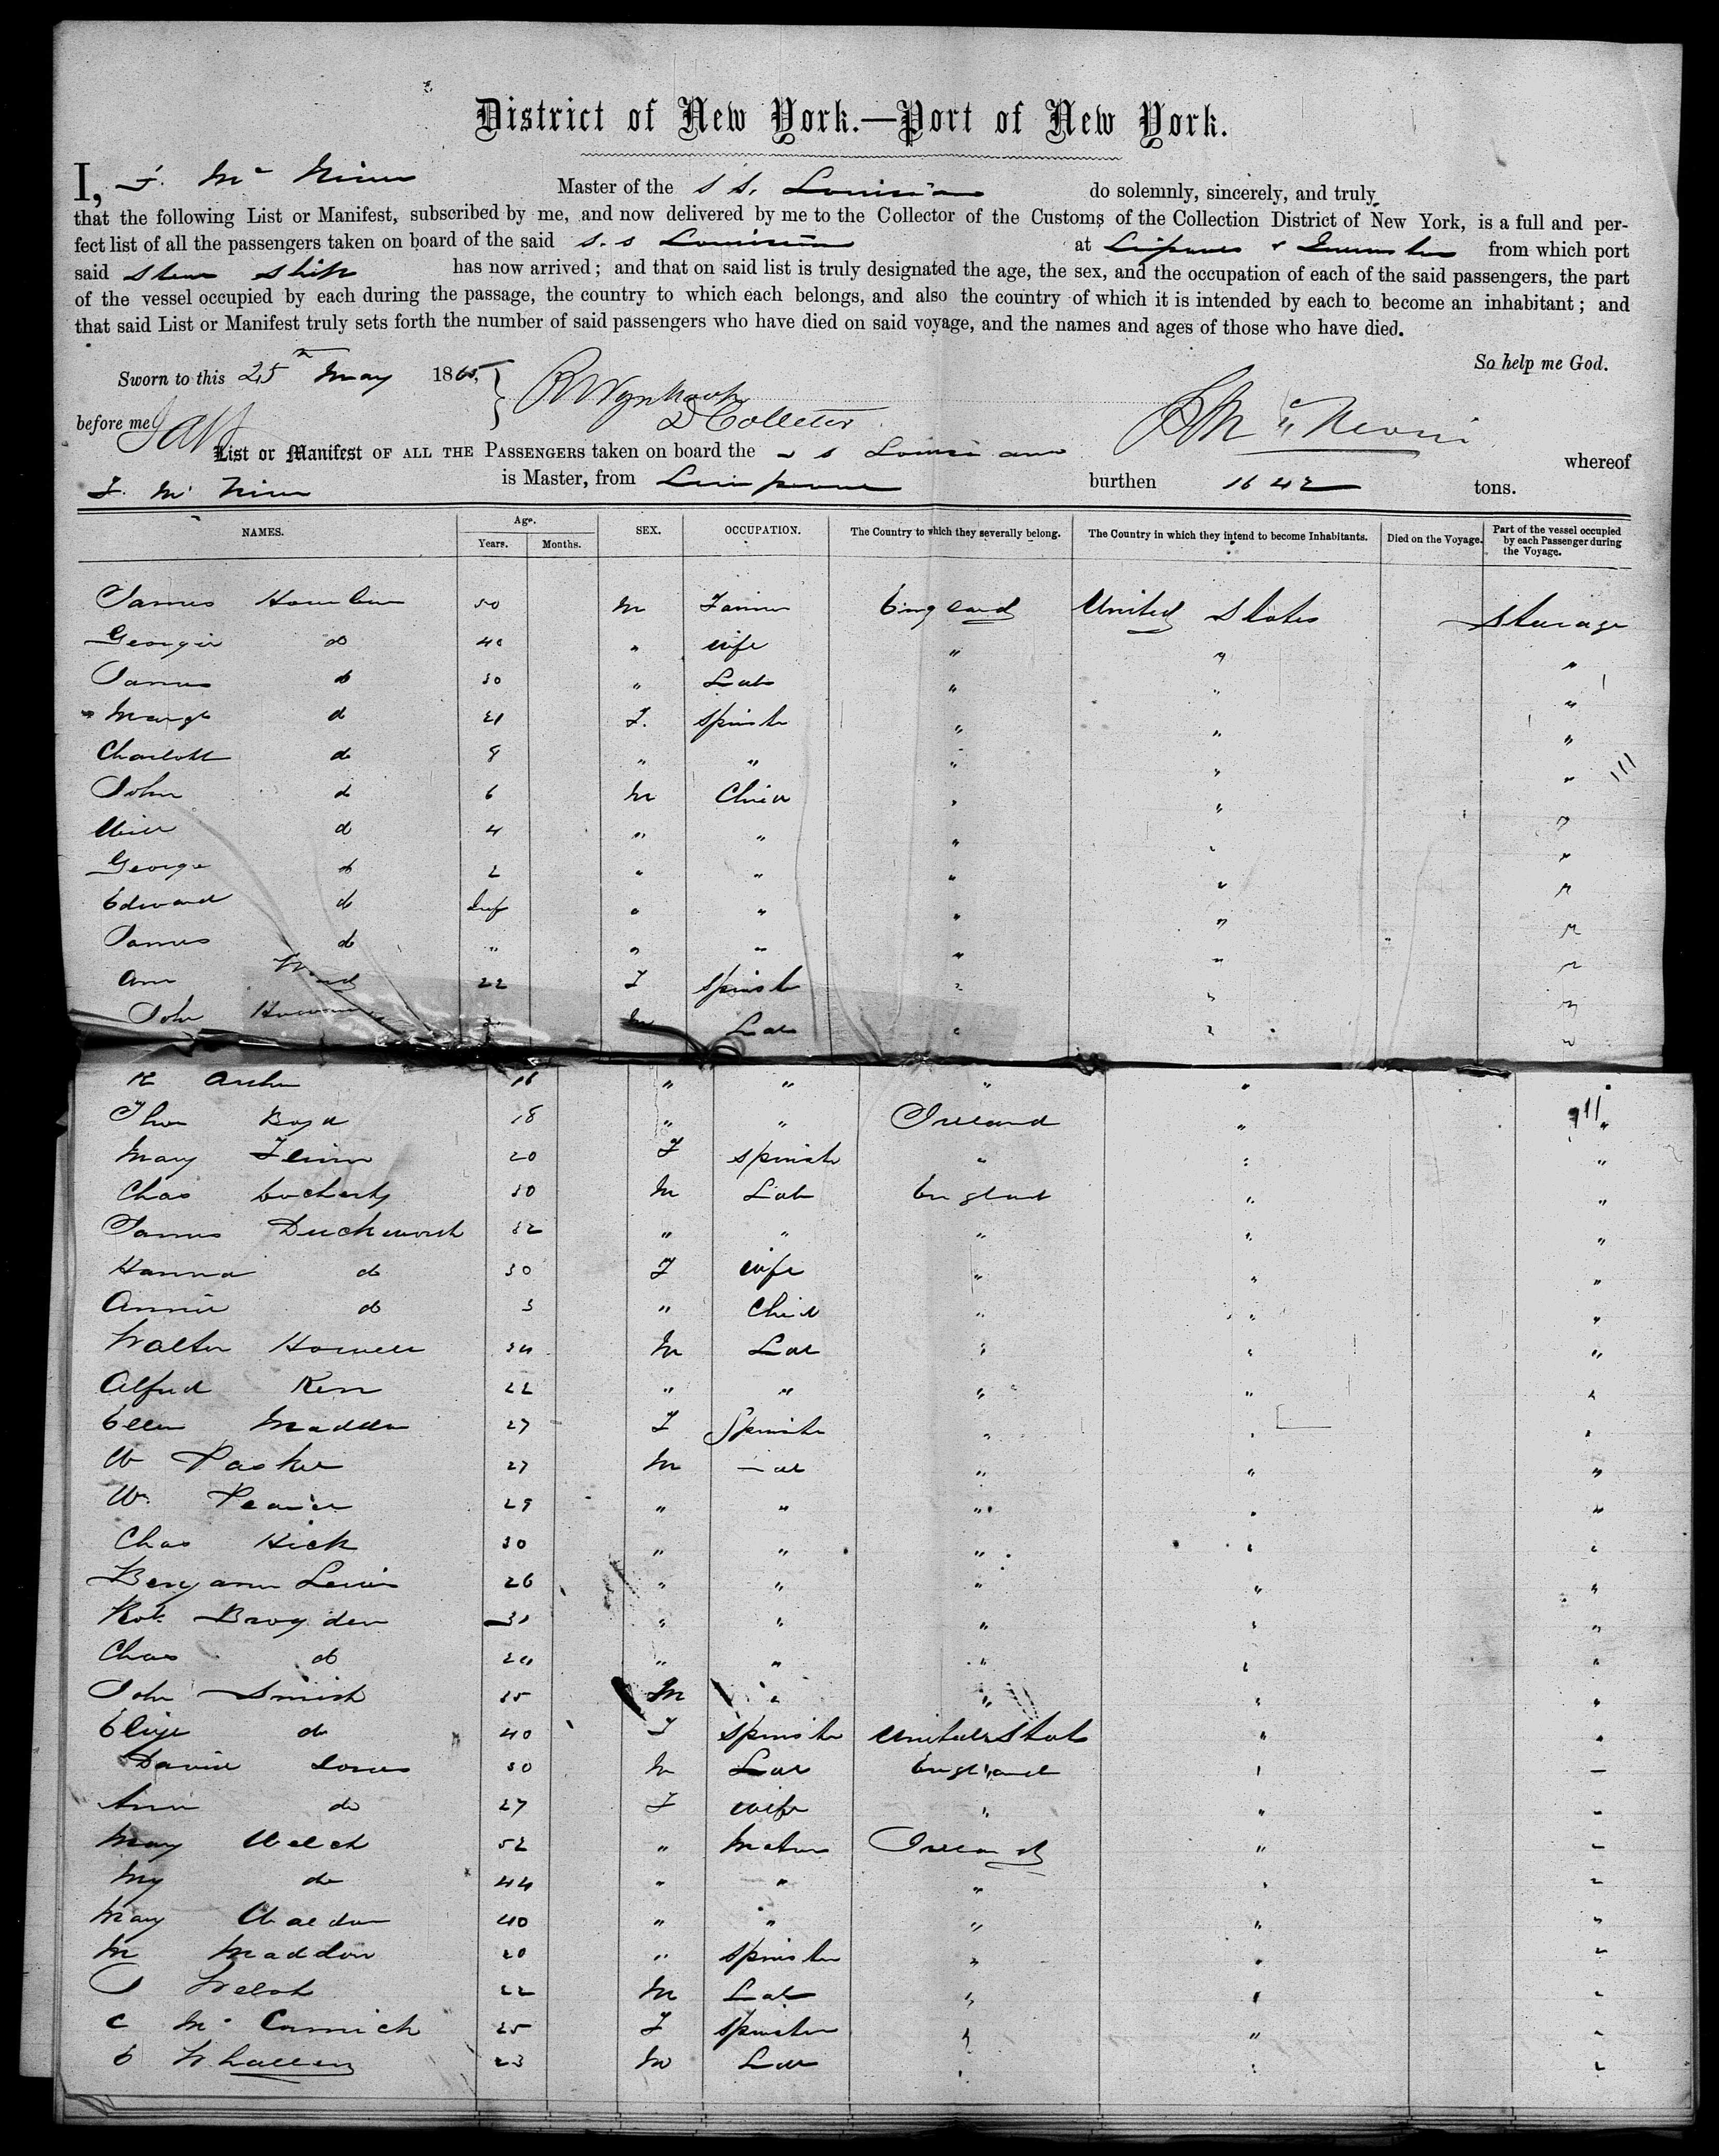 District of New York.—Port of New York.
I, Master of the S S. Louisiana do solemnly, sincerely, and truly
that the following List or Manifest, subscribed by me, and now delivered by me to the Collector of the Customs of the Collection District of New York, is a full and per-
fect list of all the passengers taken on board of the said S. S Louisiana at from which port
said Steam Ship has now arrived; and that on said list is truly designated the age, the sex, and the occupation of each of the said passengers, the part
of the vessel occupied by each during the passage, the country to which each belongs, and also the country of which it is intended by each to become an inhabitant; and
that said List or Manifest truly sets forth the number of said passengers who have died on said voyage, and the names and ages of those who have died.
So help me God.
Sworn to this 25th May 1865,
before me D Collector
List or Manifest OF ALL THE PASSENGERS taken on board the S S Louisiana whereof
is Master, from Liverpool burthen 1642 tons.
NAMES. Age. Years. Months. SEX. OCCUPATION. The Country to which they severally belong. The Country in which they intend to become Inhabitants. Died on the Voyage. Part of the vessel occupied by each Passenger during the Voyage.
James 50 M England United States Steerage
Georgie do 40 " wife " " "
James do 30 " Lab " " "
Margt do 21 F. Spinster " " "
Charlott do 8 " " " " "
John do 6 M Child " " "
Will do 4 " " " " "
George do 2 " " " " "
Edward do Inf " " " " "
James do " " " " " "
Ann 22 F Spinster " " "
John M Lab " " "
Archer 16 " " " " "
Thos Boyd 18 " " Ireland " "
Mary 20 F Spinster " " "
Chas 30 M Lab England " "
James Duckworth 32 " " " " "
Hanna do 30 F wife " " "
Annie do 3 " Child " " "
Walter Howell M Lab " " "
Alfred Kerr 22 " " " " "
Ellen Madden 27 F Spinster " " "
W 27 M Lab " " "
W. 29 " " " " "
Chas Hick 30 " " " " "
Benjamin Lewis 26 " " " " "
Rob. Brogden " " " " "
Chas do " " " " "
John Smith 35 M " " " "
do 40 F Spinster United Stat " "
David Jones 30 M Lab England " "
Ann do 27 F wife " " "
Mary Welch 52 " Matron Ireland " "
My do 44 " " " " "
Mary Waldon 40 " " " " "
M Maddon 20 " Spinster " " "
J Welsh 22 M Lab " " "
C McCormick 25 F Spinster " " "
E Whallen 23 M Lab " " "